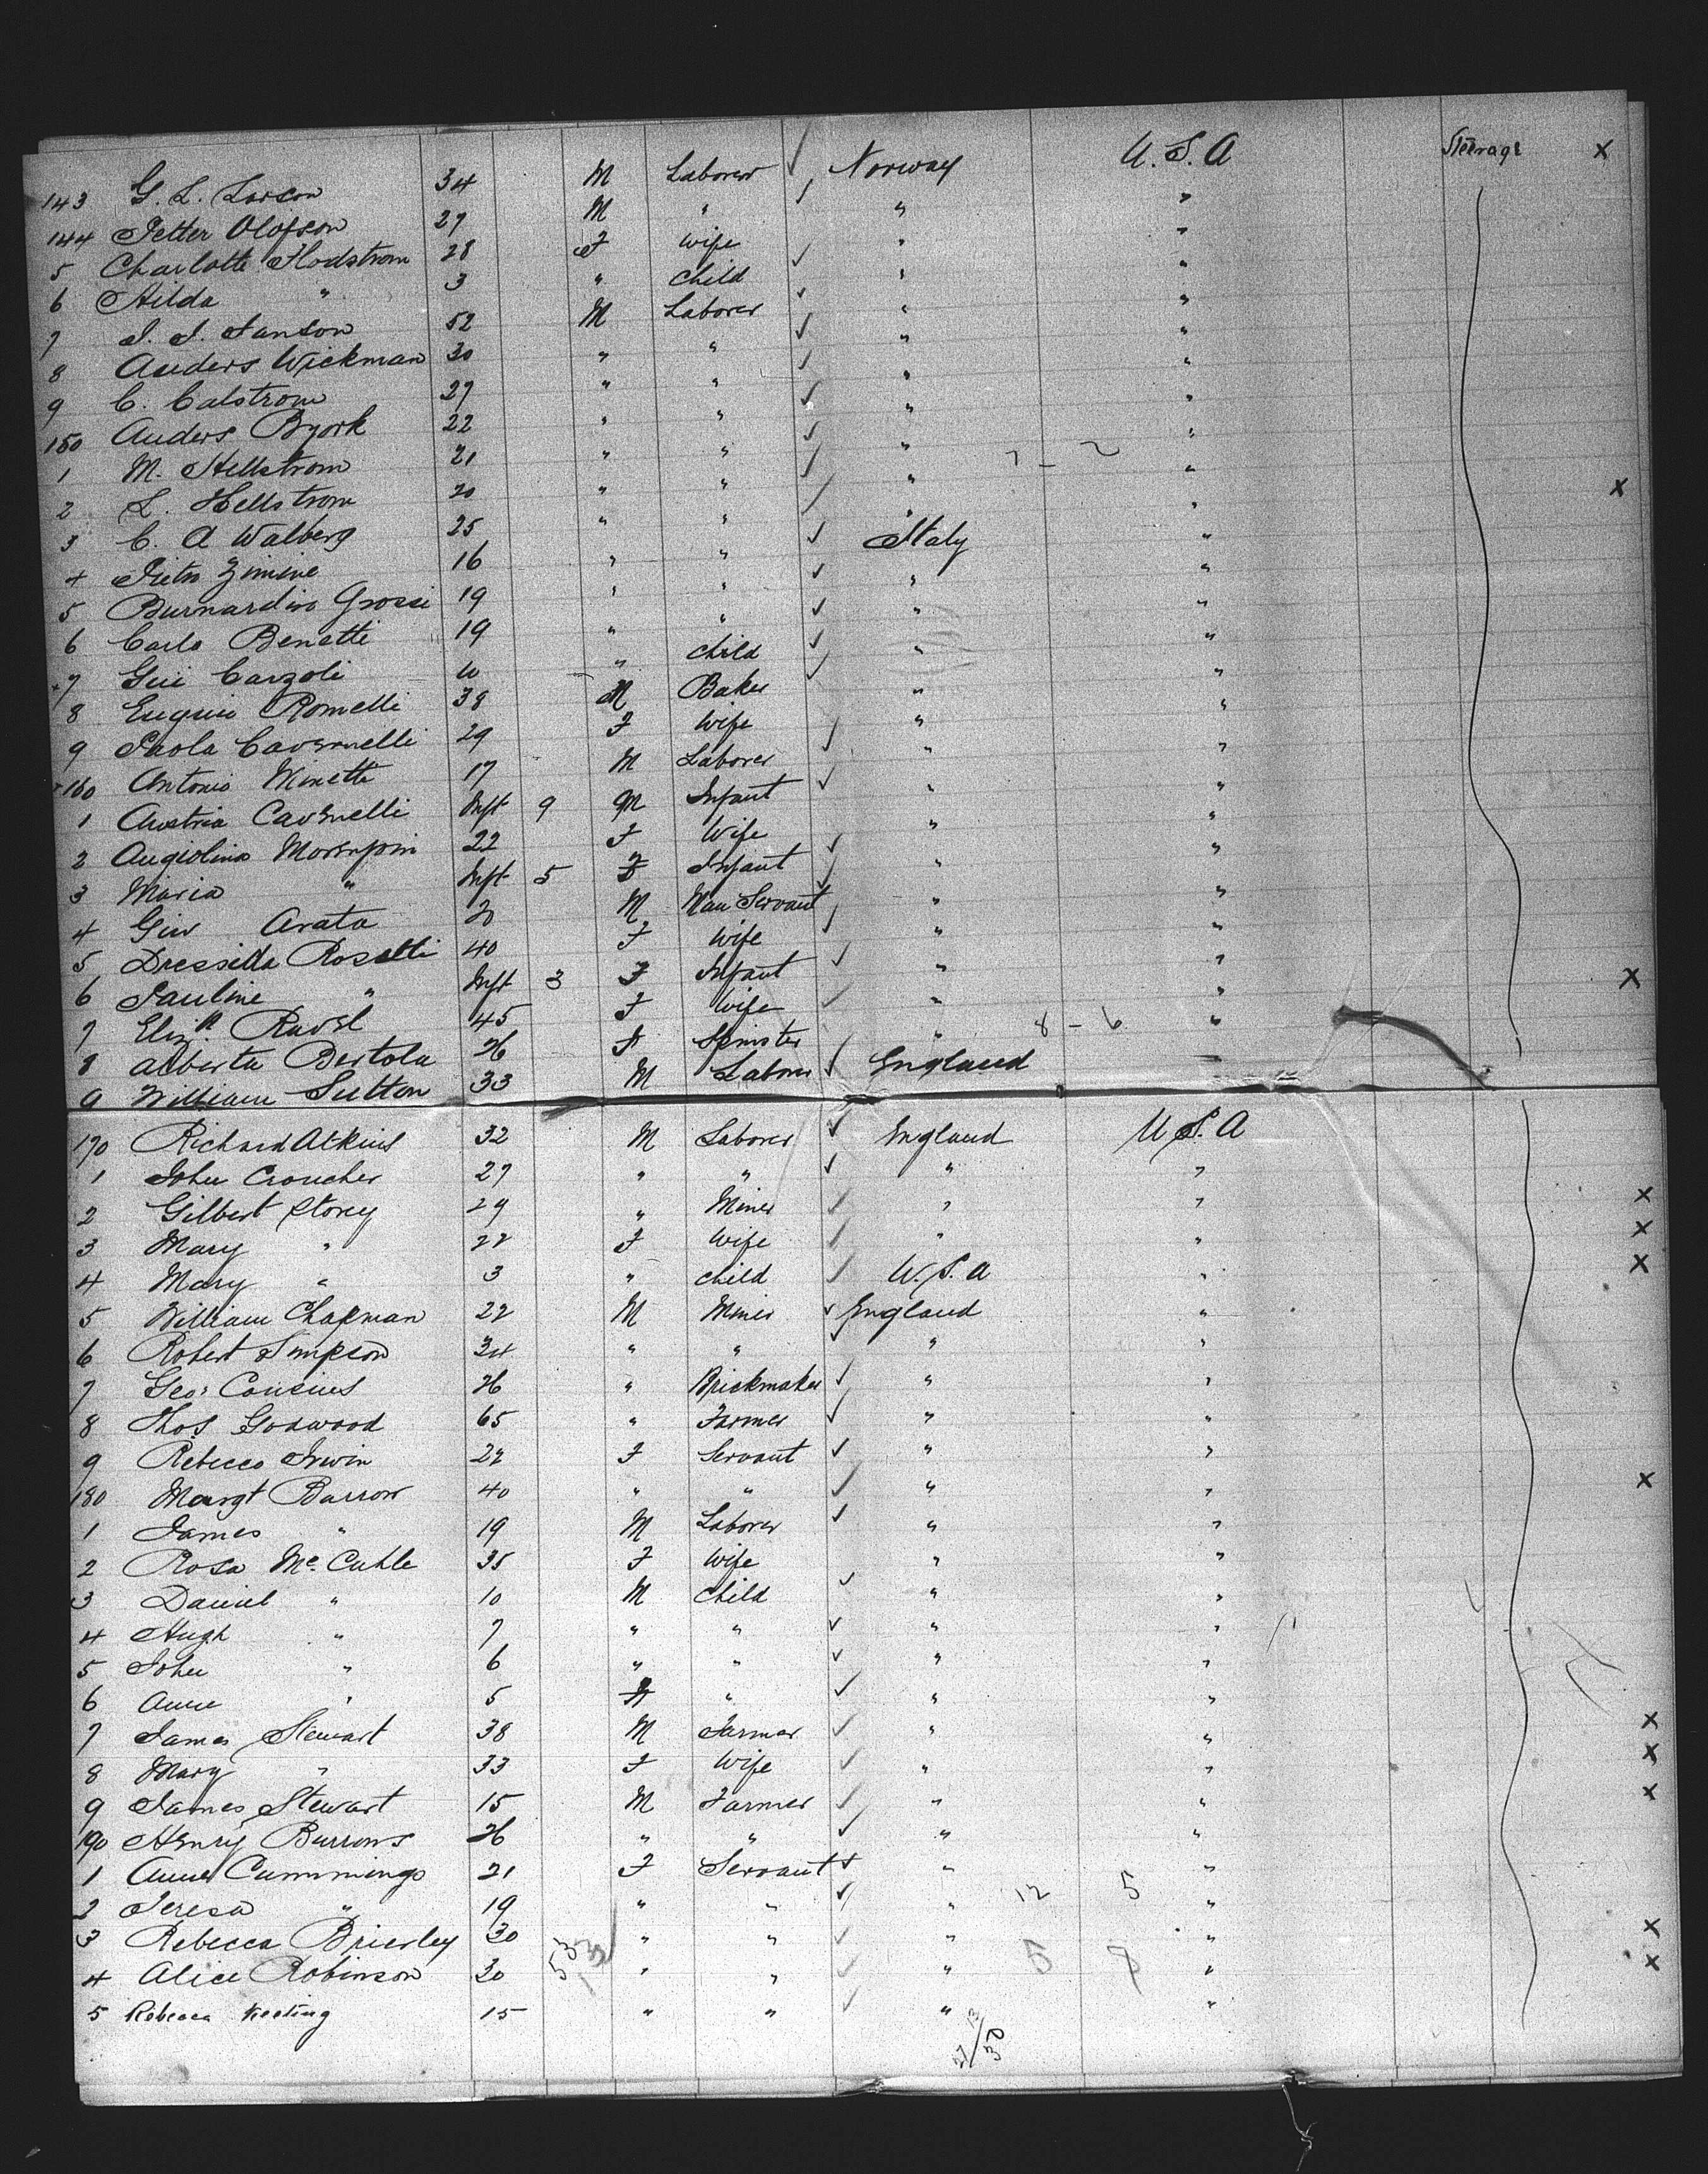 143 G. L. Larson 34 M Laborer Norway U. S. A Steerage X
144 Petter Olofson 27 M " " "
5 Charlotte Flodstrom 28 F wife " "
6 Hilda " 3 " child " "
7 J. J. Janson 52 M Laborer " "
8 Anders Wickman 30 " " " "
9 C. Calstrom 27 " " " "
150 Anders Byork 22 " " " "
1 M. Hellstrom 21 " " " 7 - 2 "
2 L. Hellstrom 20 " " " " X
3 C. A Walberg 25 " " " "
4 Pietro Zimine 16 " " Italy "
5 Burnardino Grossi 19 " " " "
6 Carlo Benetti 19 " " " "
+7 Gui Carzoli 10 " child " "
8 Eugenio Romelli 38 M Baker " "
9 Paola Cavernelli 29 F Wife " "
+160 Antonio Minetti 17 M Laborer " "
1 Austria Cavenelli Inft 9 M Infant " "
2 Angiolina 22 F Wife " "
3 Maria " Inft 5 F Infant " "
4 Giu Arata 20 M Man Servant " "
5 Dressilla Rosetti 40 F Wife " "
6 Pauline " Inft 3 F Infant " " X
7 Eliz.h Ravel 45 F Wife " "
8 Alberta Bertola 26 F Spinster " 8 - 6 "
9 William Sutton 33 M Laborer England "
170 Richard Atkins 32 M Laborer England U.S.A
1 John Croucher 27 " " " "
2 Gilbert Storey 29 " Miner " " X
3 Mary " 22 F Wife " " X
4 Mary " 3 " child U.S.A " X
5 William Chapman 22 M Miner England "
6 Robert Simpson 34 " " " "
7 Geo: Cousins 26 " Brickmaker " "
8 Thos Goawood 65 " Farmer " "
9 Rebecca Irwin 22 F Servant " "
180 Margt Barrow 40 " " " " X
1 James " 19 M Laborer " "
2 Rosa Mc. Cuhle 35 F Wife " "
3 Daniel " 10 M child " "
4 Hugh " 7 " " " "
5 John " 6 " " " "
6 Anne " 5 F " " "
7 James Stewart 38 M Farmer " " X
8 Mary " 33 F Wife " " X
9 James Stewart 15 M Farmer " " X
190 Henry Burrows 26 " " " "
1 Anne Cummings 21 F Servant " "
2 Teresa " 19 " " " 12 5 "
3 Rebecca Brierley 30 " " " " X
4 Alice Robinson 30 53 " " " 5 7 " X
5 Rebecca Keeting 15 " " " "